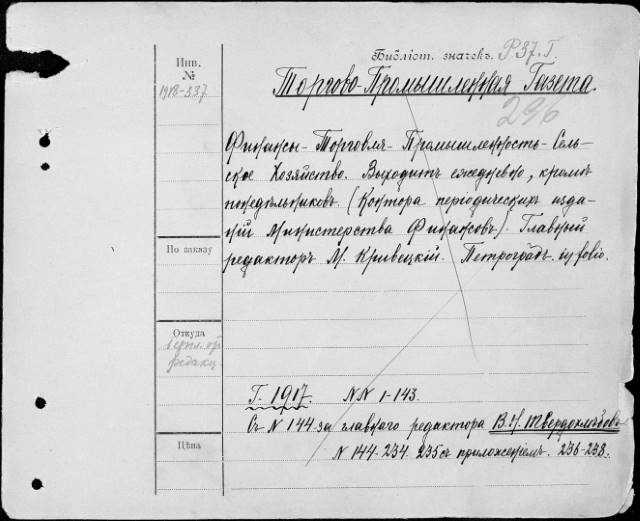 Библіот. значекъ. Р37.Г.
Инв.
№
1918-337
Торгово-Промышленная Газета.
296
Финансы - Торговля - Промышленность - Сель-
ское Хозяйство. Выходитъ ежедневно, кромѣ
понедѣльниковъ. (Контора періодическихъ изда-
ній Министерства Финансовъ). Главный
редакторъ М. Кривецкій. Петроградъ. in folio.
По заказу
Откуда
редакц
Г. 1917. NN 1-143.
Съ N 144 за главнаго редактора В.Н. Твердохлѣбовъ
N 144-234. 235 съ приложеніемъ. 236-238.
Цѣна